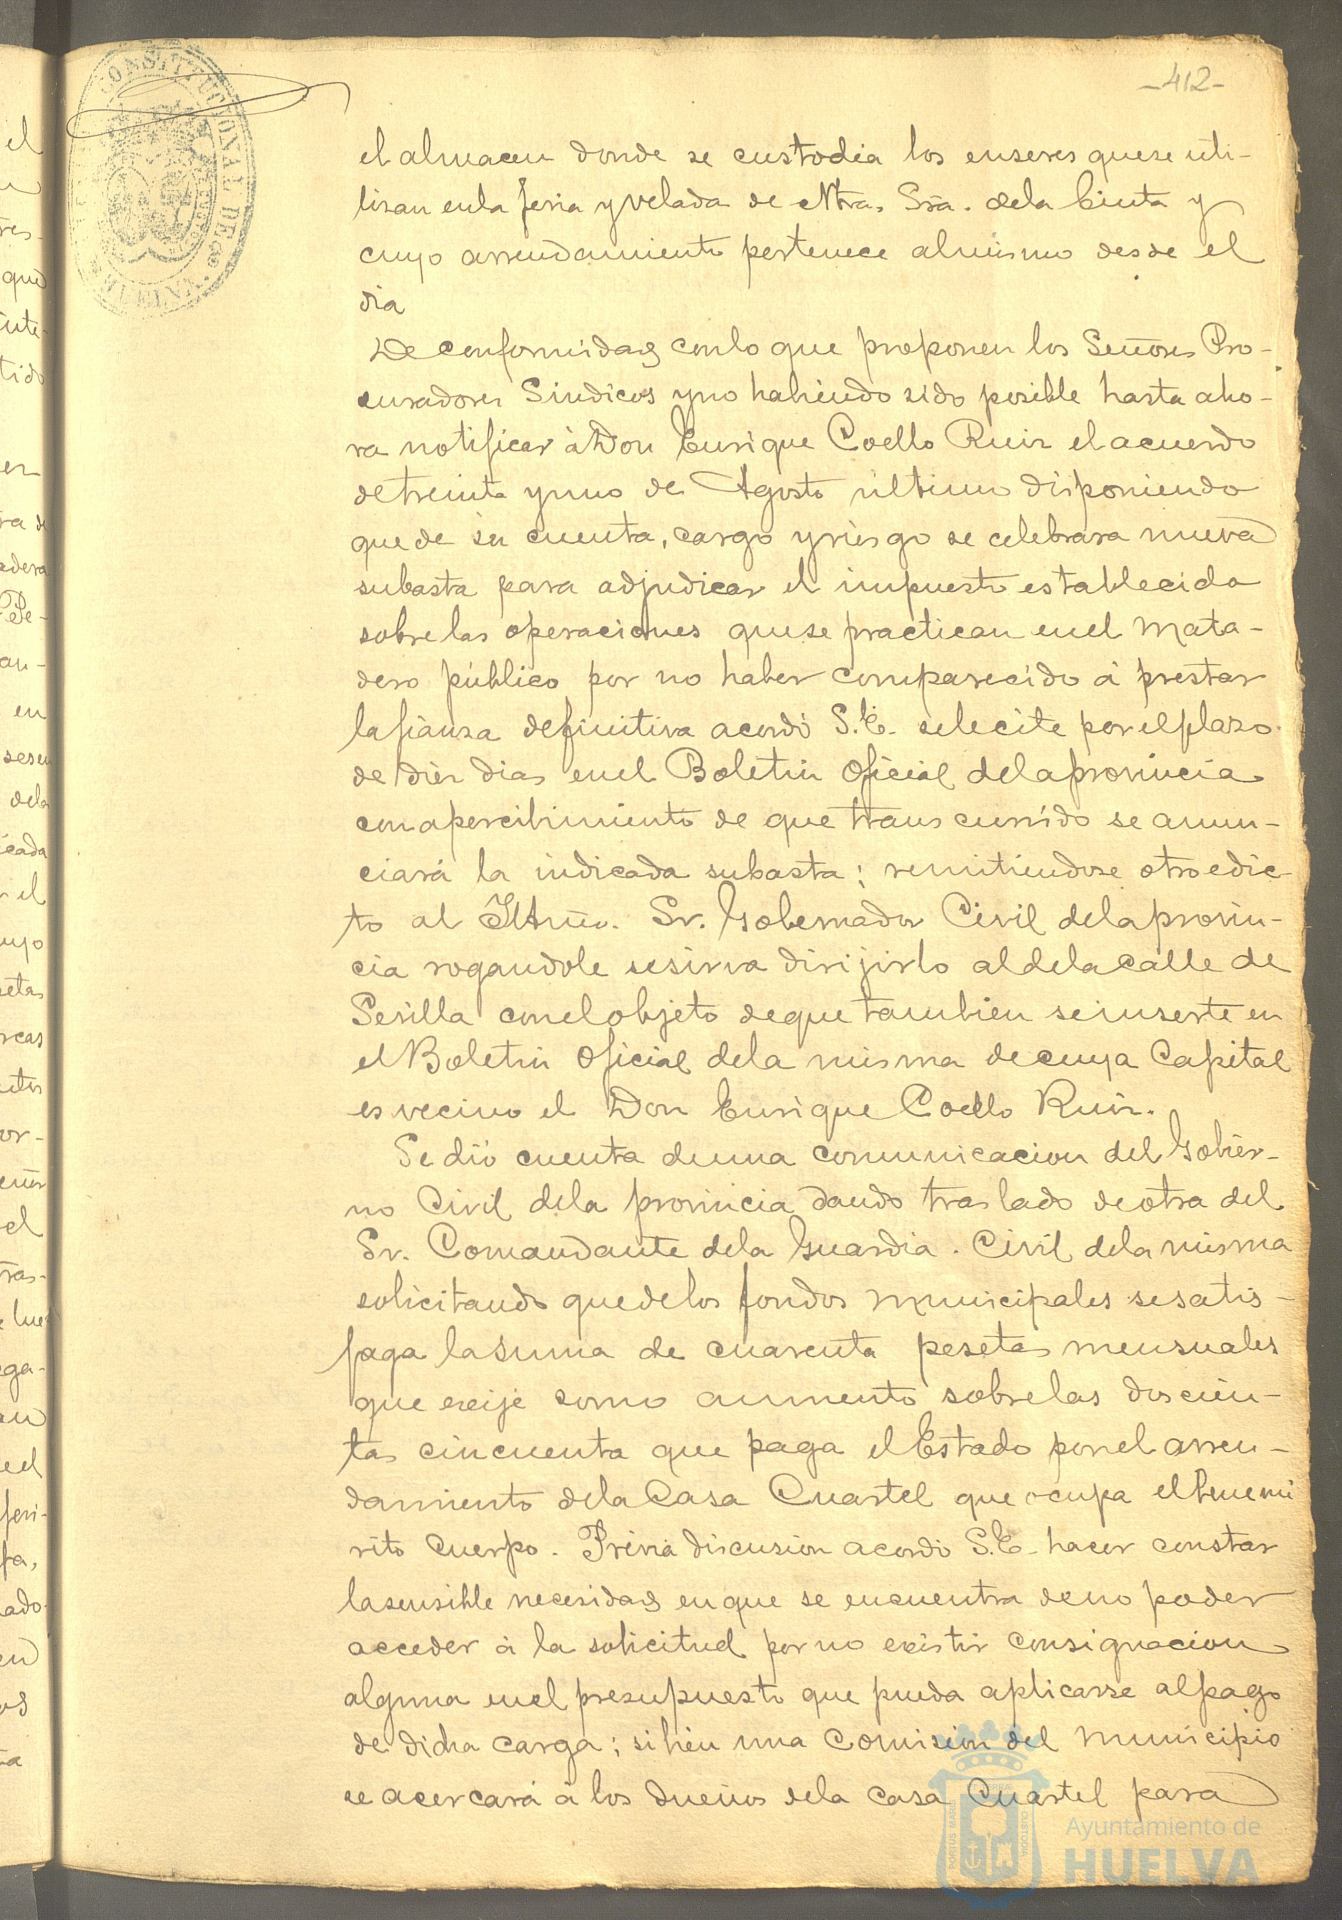 -412-
el almacen donde se custodia los enseres que se uti-
lizan en la feria y velada de Ntra. Sra. de la Cinta y
cuyo arrendamiento pertenece al mismo desde el
dia
De conformidad con lo que proponen los Señores Pro-
curadores Sindicos y no habiendo sido posible hasta aho-
ra notificar á Don Enrique Coello Ruiz el acuerdo
de treinta y uno de Agosto último disponiendo
que de su cuenta, cargo y riesgo se celebrara nueva
subasta para adjudicar el impuesto establecido
sobre las operaciones que se practican en el Mata-
dero público por no haber comparecido á prestar
la fianza definitiva acordó S.E. se le cite por el plazo
de diez dias en el Boletin Oficial de la provincia
con apercibimiento de que transcurrido se anun-
ciará la indicada subasta; remitiendose otro edic-
to al Iltmo. Sr. Gobernador Civil de la provin-
cia rogandole se sirva dirijirlo al de la calle de
Sevilla con el objeto de que tambien se inserte en
el Boletin Oficial de la misma de cuya Capital
es vecino el Don Enrique Coello Ruiz.
Se dió cuenta de una comunicacion del Gobier-
no Civil de la provincia dando traslado de otra del
Sr. Comandante de la Guardia Civil de la misma
solicitando que de los fondos municipales se satis-
faga la suma de cuarenta pesetas mensuales
que exije como aumento sobre las doscien-
tas cincuenta que paga el Estado por el arren-
damiento de la Casa Cuartel que ocupa el beneme
rito Cuerpo. Previa discusion acordó S.E. hacer constar
la sensible necesidad en que se encuentra de no poder
acceder á la solicitud por no existir consignacion
alguna en el presupuesto que pueda aplicarse al pago
de dicha carga; si bien una Comision del Municipio
se acercará á los dueños de la casa Cuartel para
CONSTITUCIONAL DE
Ayuntamiento de
HUELVA